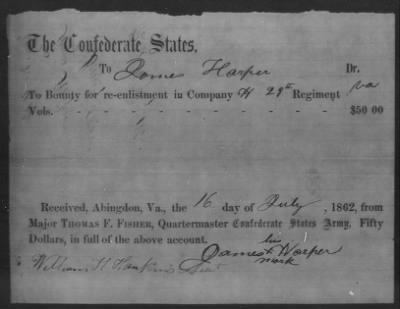 The Confederate States,
To James Harper Dr.
To Bounty for re-enlistment in Company H 29th Regiment Va
Vols. - - - - - - - - - $50 00
Received, Abingdon, Va., the 16 day of July, 1862, from
Major THOMAS F. FISHER, Quartermaster Confederate States Army, Fifty
Dollars, in full of the above account.
his
James + Harper
mark
William H Hawkins